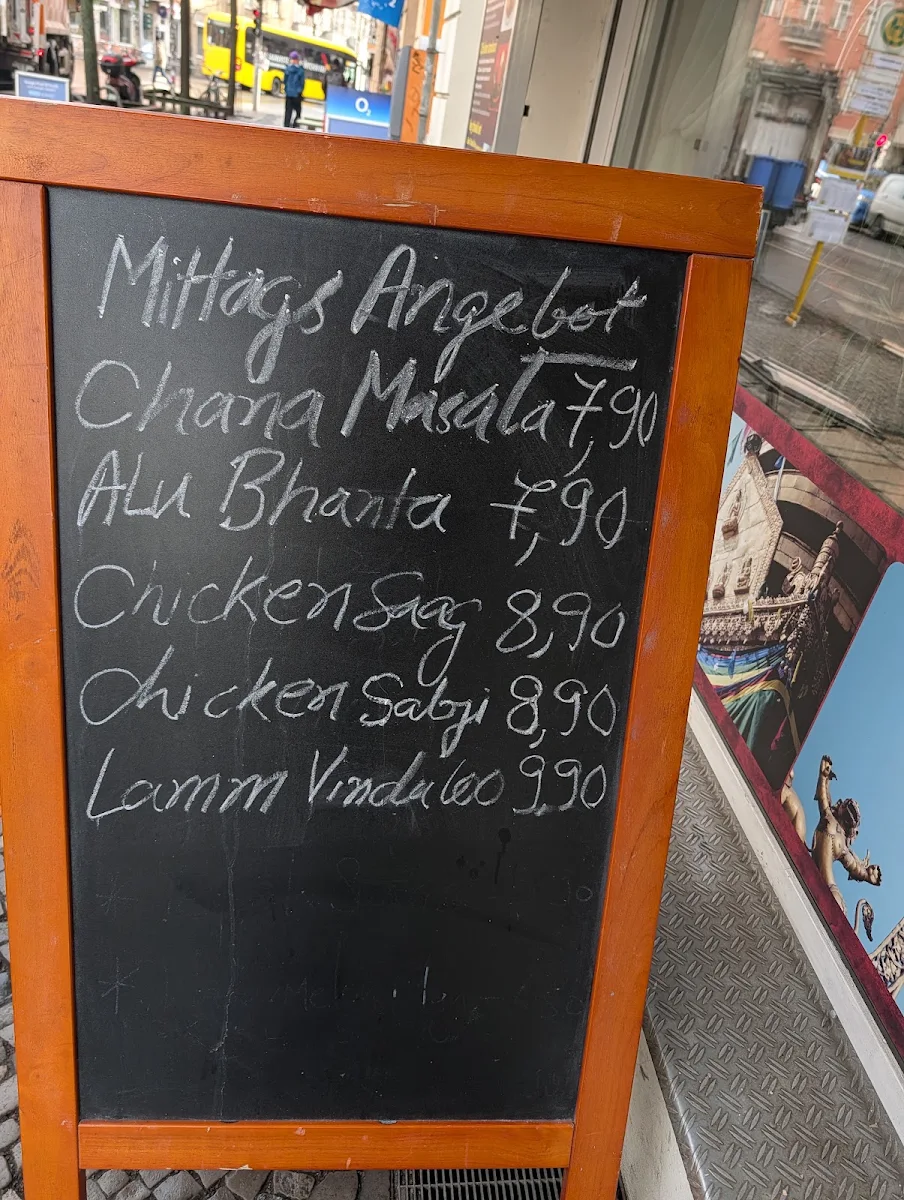 O₂
Mittags Angebot
Chana Masala 7,90
Alu Bhanta 7,90
Chicken Saag 8,90
Chicken Sabji 8,90
Lamm Vindaloo 9,90